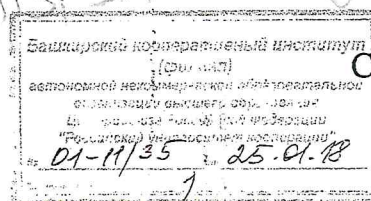 Башкирский кооперативный институт
(филиал)
автономной некоммерческой образовательной
организации высшего образования
Федерации
"Российский университет кооперации"
№ 01-11/35 25.01.18
1
С